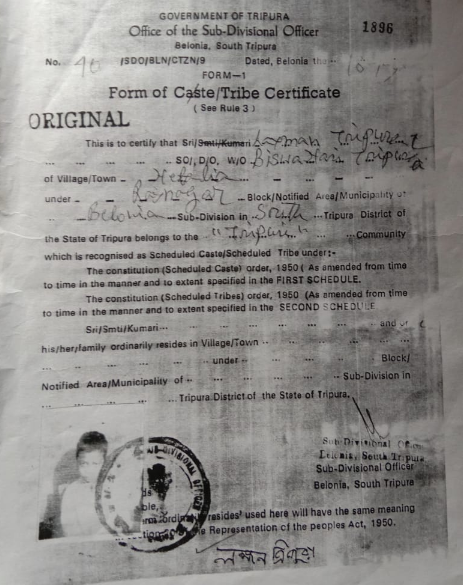 GOVERNMENT OF TRIPURA
Office of the Sub-Divisional Officer
1896
Belonia, South Tripura
No. /SDO/BLN/CTZN/9 Dated, Belonia the
FORM—1
Form of Caste/Tribe Certificate
( See Rule 3 )
ORIGINAL
This is to certify that Sri/Smti/Kumari Laxman Tripura
SO/, D/O, W/O Tripura
of Village/Town -
under - Block/Notified Area/Municipality of
Belonia Sub-Division in South Tripura District of
the State of Tripura belongs to the "Tripuri" Community
which is recognised as Scheduled Caste/Scheduled Tribe under:-
The constitution (Scheduled Caste) order, 1950 ( As amended from time
to time in the manner and to extent specified in the FIRST SCHEDULE.
The constitution (Scheduled Tribes) order, 1950 (As amended from time
to time in the manner and to extent specified in the SECOND SCHEDULE
Sri/Smti/Kumari and of
his/her/family ordinarily resides in Village/Town
under Block/
Notified Area/Municipality of Sub-Division in
Tripura District of the State of Tripura.
Sub-Divisional
Belonia, South Tripura
Sub-Divisional Officer
Belonia, South Tripura
SUB-DIVISIONAL
resides' used here will have the same meaning
Representation of the peoples Act, 1950.
লক্ষন ত্রিপুরা